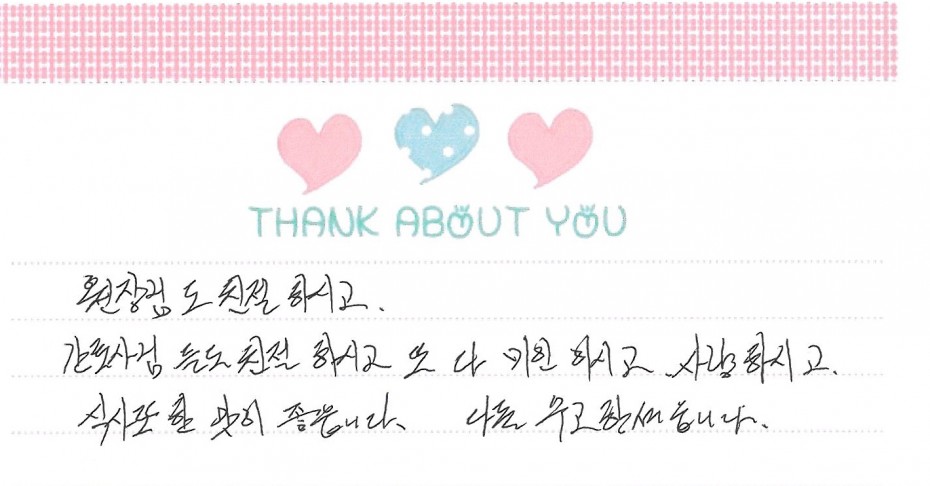 THANK ABOUT YOU
원장님도 친절하시고.
간호사님들도 친절하시고 또 다 하시고 사랑하시고.
식사도 맛이 좋습니다. 나는